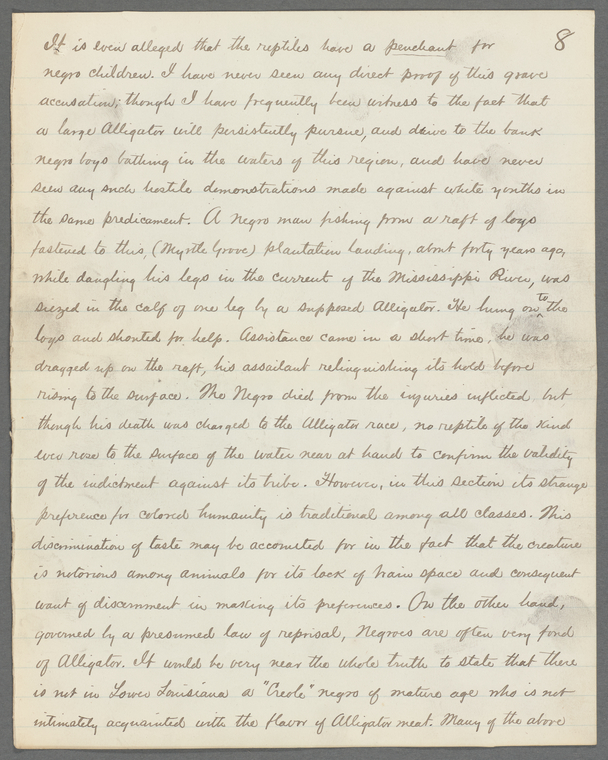 8
It is even alleged that the reptiles have a penchant for
negro children. I have never seen any direct proof of this grave
accusation; though I have frequently been witness to the fact that
a large Alligator will persistently pursue, and drive to the bank
negro boys bathing in the waters of this region, and have never
seen any such hostile demonstrations made against white youths in
the same predicament. A Negro man fishing from a raft of logs
fastened to this, (Myrtle Grove) plantation landing, about forty years ago,
while dangling his legs in the current of the Mississippi River, was
siezed in the calf of one leg by a supposed Alligator. He hung on to the
logs and shouted for help. Assistance came in a short time, he was
dragged up on the raft, his assailant relinquishing its hold before
rising to the surface. The Negro died from the injuries inflicted, but
though his death was charged to the Alligator race, no reptile of the kind
ever rose to the surface of the water near at hand to confirm the validity
of the indictment against its tribe. However, in this section its strange
preference for colored humanity is traditional among all classes. This
discrimination of taste may be accounted for in the fact that the creature
is notorious among animals for its lack of brain space and consequent
want of discernment in making its preferences. On the other hand,
governed by a presumed law of reprisal, Negroes are often very fond
of Alligator. It would be very near the whole truth to state that there
is not in Lower Louisiana a "Creole" negro of mature age who is not
intimately acquainted with the flavor of Alligator meat. Many of the above